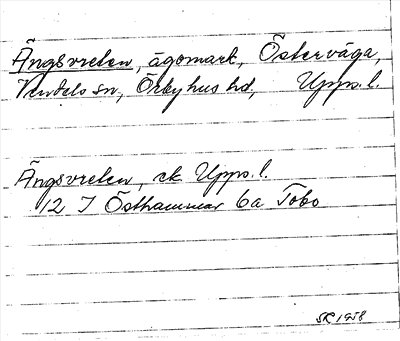 Ängsvreten, ägomark, Österväga,
Vendels sn, Örbyhus hd, Upps. l.
Ängsvreten, ek Upps. l.
12 I Östhammar 6a Tobo
SR 1958